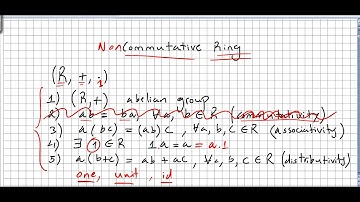 NonCommutative Ring
(R, +, ·)
1) (R,+) abelian group
2) ab = ba, ∀a, b ∈ R (commutativity)
3) a(bc) = (ab)c, ∀a, b, c ∈ R (associativity)
4) ∃ 1 ∈ R 1a = a = a.1
5) a(b+c) = ab + ac, ∀a, b, c ∈ R (distributivity)
one, unit, id